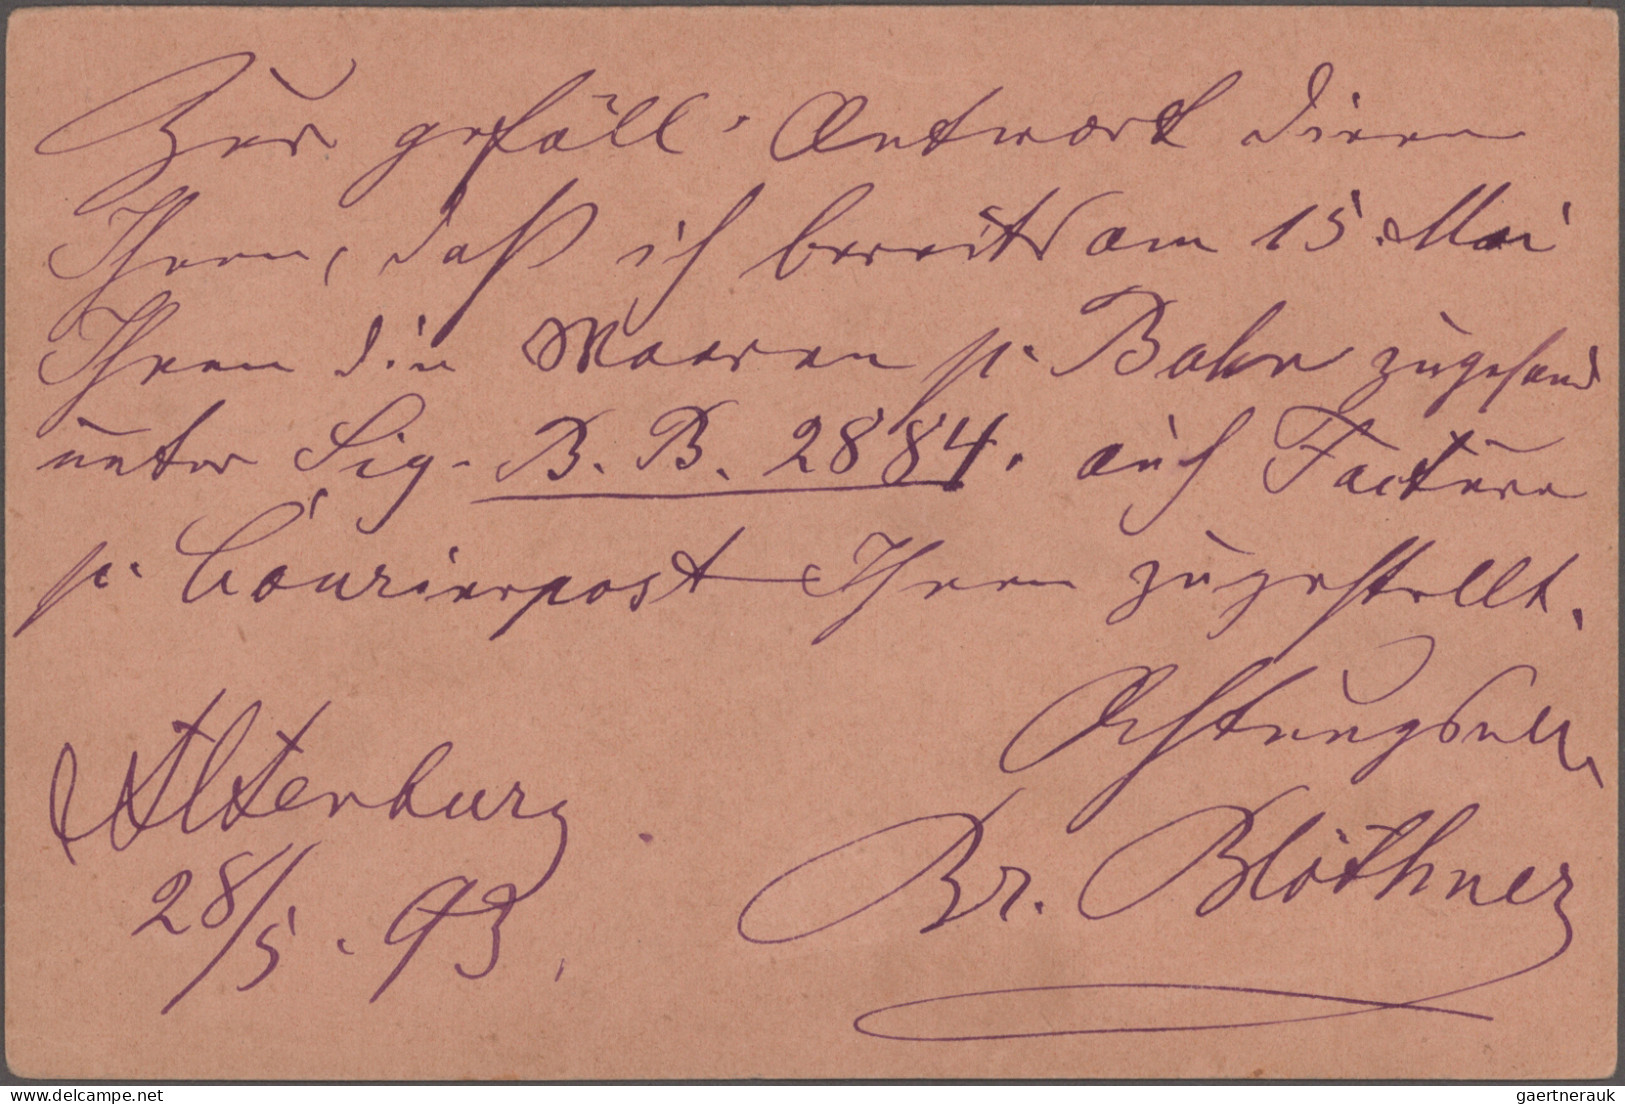 Zur gefäll. Antwort diene
Ihnen, daß ich bereits am 15. Mai
Ihnen die Waaren p. Bahn zugesand
unter Sig. B. B. 2884. auch Factura
p. Courierpost Ihnen zugestellt.
Achtungsvoll
Altenburg
Br. Blöthner
28/5. 93.
delcampe.net
gaertnerauk